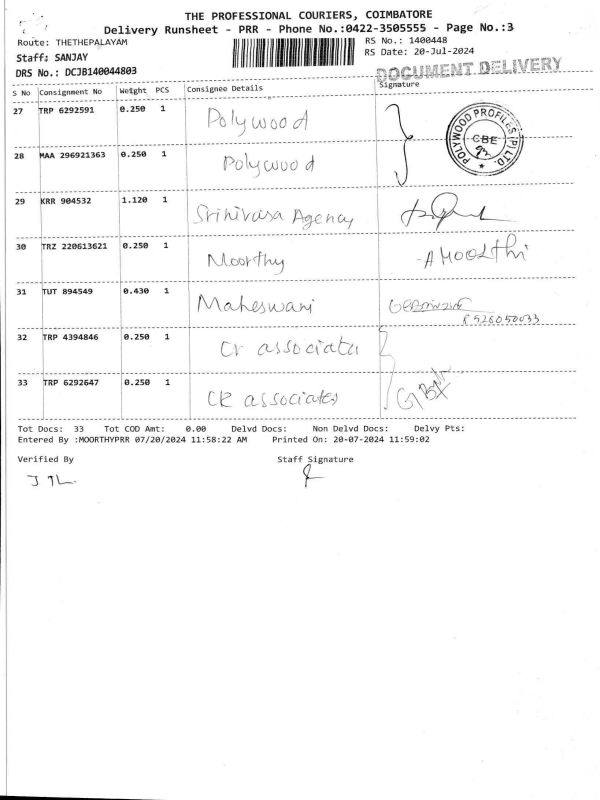 THE PROFESSIONAL COURIERS, COIMBATORE
Delivery Runsheet - PRR - Phone No.:0422-3505555 - Page No.:3
Route: THETHEPALAYAM RS No.: 1400448
Staff: SANJAY RS Date: 20-Jul-2024
DRS No.: DCJB140044803 DOCUMENT DELIVERY
S No Consignment No Weight PCS Consignee Details Signature
27 TRP 6292591 0.250 1 Polywood
POLYWOOD PROFILES (P) LTD. CBE
28 MAA 296921363 0.250 1 Polywood
29 KRR 904532 1.120 1 Srinivasa Agency
30 TRZ 220613621 0.250 1 Moorthy A MOORTHI
31 TUT 894549 0.430 1 Maheswani
32 TRP 4394846 0.250 1 Cr associate
33 TRP 6292647 0.250 1 CR associates
Tot Docs: 33 Tot COD Amt: 0.00 Delvd Docs: Non Delvd Docs: Delvy Pts:
Entered By :MOORTHYPRR 07/20/2024 11:58:22 AM Printed On: 20-07-2024 11:59:02
Verified By Staff Signature